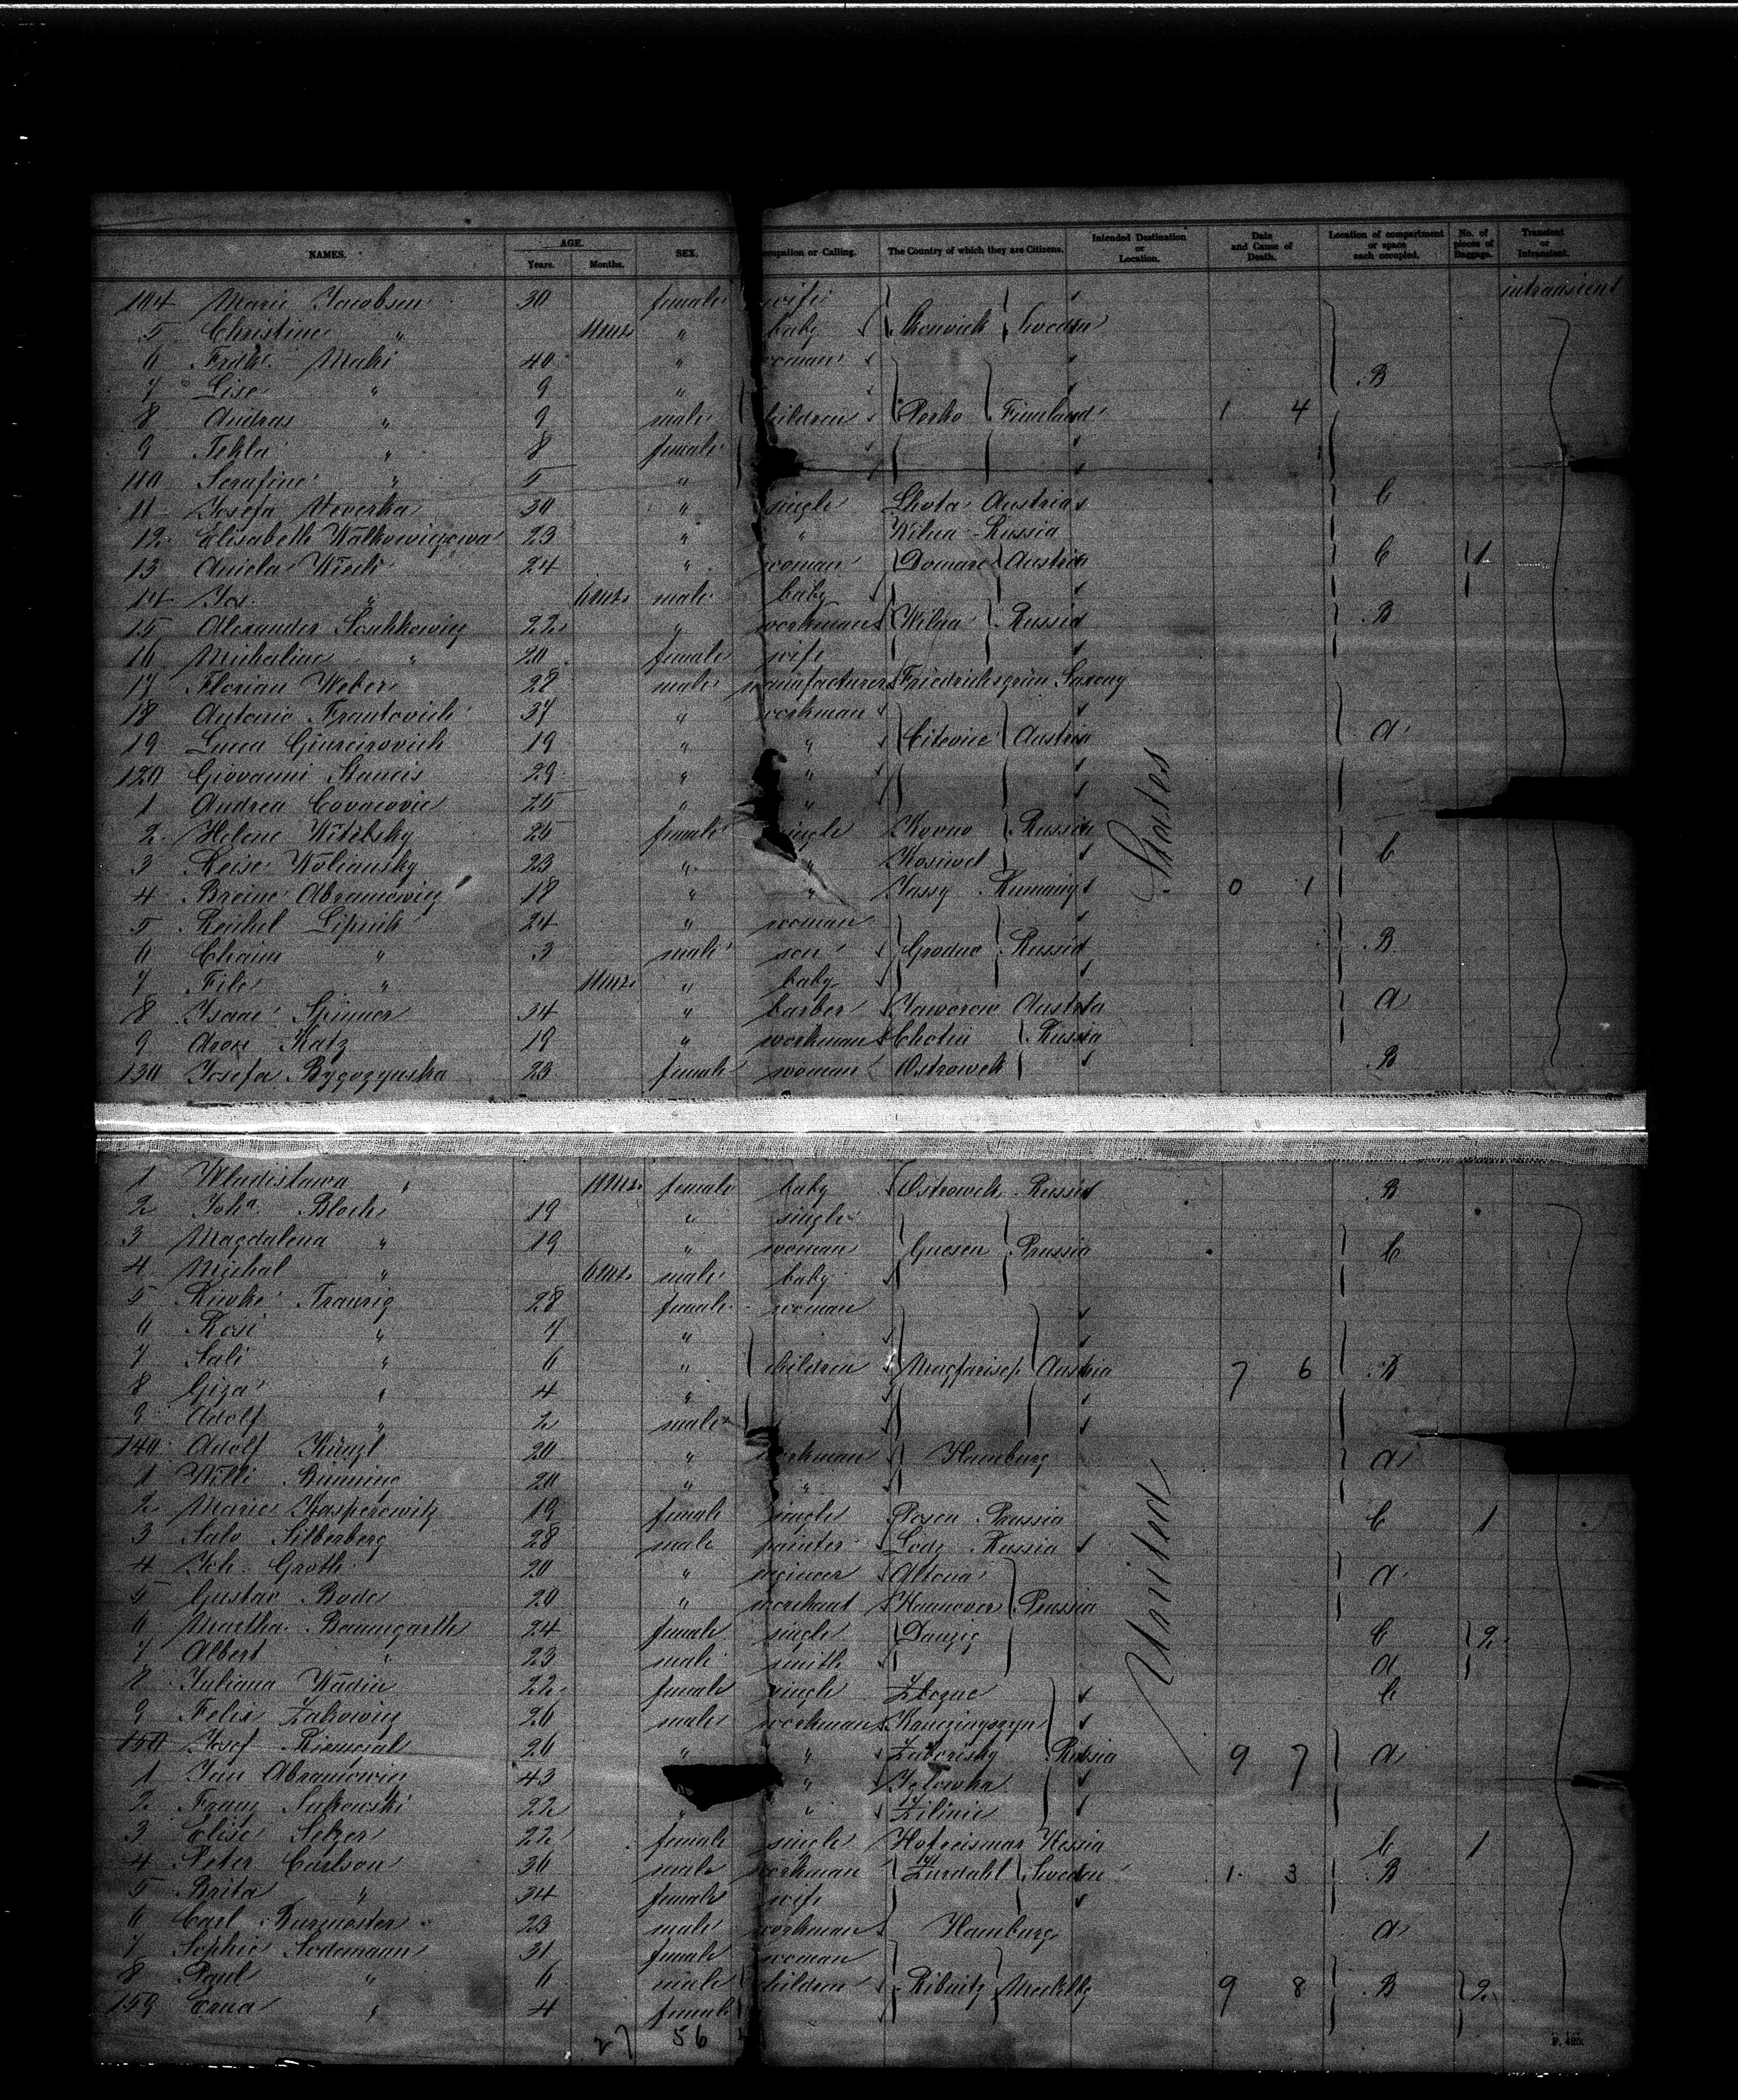 NAMES. AGE. Years. Months. SEX. cupation or Calling. The Country of which they are Citizens. Intended Destination or Location. Date and Cause of Death. Location of compartment or space each occupied. No. of pieces of Baggage. Transient or Intransient.
104 Marie Jacobsen 30 female wife intransient
5 Christine " 11 mts " baby Sweden
6 Fredr. Maki 40 " woman
7 Lise " 9 " B
8 Andras " 9 male children Finnland 1 4
9 Tekla " 8 female
110 Serafine " 5 "
11 Josefa Weverka 30 " single Lhota Austria C
12 Elisabeth Walkowiczowa 23 " " Wilna Russia
13 Aniela 24 " woman Austria C 1
14 Jos. " 6 mts male baby
15 Alexander 22 " workman Wilna Russia B
16 Micheline " 20 female wife
17 Florian Weber 28 male manufacturer Friedrichsgrün Saxony
18 Antonio Frantovich 37 " workman
19 Lucca 19 " " Austria a
120 Giovanni Stancis 29 " "
1 Andrea Covacovic 25 " "
2 Helene Witebsky 25 female single Kowno Russia
3 Reise Woliansky 23 " " C
4 Breine Abramowicz 18 " " Jassy 0 1
5 Reichel Lipnik 24 " woman
6 Chaim " 3 male son Grodno Russia B
7 File " 11 mts " baby
8 Isaac Spinner 34 " barber Jaworow Austria a
9 Aron Katz 19 " workman Chotin Russia
130 Josefa 23 female woman Ostrowek B
States
1 Wladislawa " 11 mts female baby Ostrowek Russia B
2 Joha. Bloch 19 " single
3 Magdalena " 19 " woman Gnesen Prussia C
4 Michal " 6 mts male baby
5 Riwke Traurig 28 female woman
6 Rosi " 7 "
7 Sali " 6 " children Austria 7 6 B
8 Giza " 4 "
9 Adolf " 2 male
140 Adolf Künzl 20 " workman Hamburg a
1 Willi Binning 20 " "
2 Marie Kasperowitz 19 female single Posen Prussia C 1
3 Salo Silberberg 28 male painter Lodz Russia
4 Joh. Groth 20 " Altona a
5 Gustav Bode 20 " merchant Hannover Prussia
6 Martha Baumgarth 24 female single Danzig C 2
7 Albert " 23 male smith a
8 Juliana Wadin 22 female single C
9 Felix Zakowicz 26 male workman
150 Josef 26 " " Russia 9 7 a
1 Jan Abramowicz 43 "
2 Franz Sukowski 22 " "
3 Elise Selzer 22 female single Hofgeismar Hessia C 1
4 Peter Carlson 36 male workman Sweden 1 3 B
5 Brita " 34 female wife
6 Carl Burmester 23 male workman Hamburg a
7 Sophie Sodemann 31 female woman
8 Paul " 6 male children Ribnitz Mecklbg 9 8 B 2
159 Erna " 4 female
United
27 56